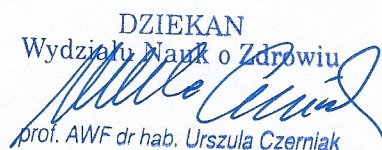 DZIEKAN
Wydziału Nauk o Zdrowiu
prof. AWF dr hab. Urszula Czerniak